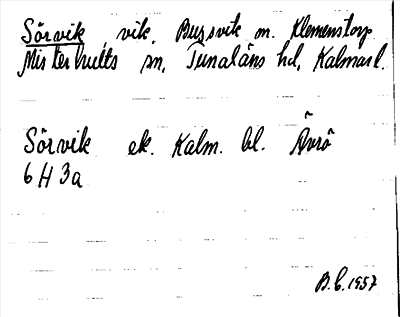 Sörvik, vik, Bussvik o. Klemenstorp
Misterhults sn, Tunaläns hd, Kalmar l.
Sörvik ek. Kalm. bl. Ävrö
6 H 3a
B.C. 1957